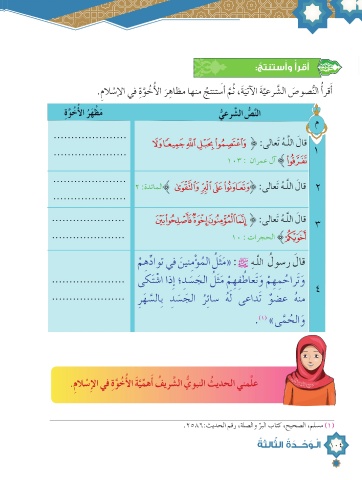 أقرأ وأستنتج:
أقرأُ النُّصوصَ الشَّرعيَّةَ الآتيَةَ، ثُمَّ أَستنتجُ منها مظاهِرَ الأُخُوَّةِ في الإسْلامِ.
م النَّصُّ الشَّرعيُّ مَظْهَرُ الأُخُوَّةِ
١ قالَ اللّهُ تَعالى: ﴿ وَٱعْتَصِمُوا۟ بِحَبْلِ ٱللَّهِ جَمِيعًا وَلَا ....................
تَفَرَّقُوا۟ ﴾ آل عمران : ١٠٣ ....................
٢ قالَ اللّهُ تَعالى: ﴿ وَتَعَاوَنُوا۟ عَلَى ٱلْبِرِّ وَٱلتَّقْوَىٰ ﴾ المائدة: ٢ ....................
....................
٣ قالَ اللّهُ تَعالى: ﴿ إِنَّمَا ٱلْمُؤْمِنُونَ إِخْوَةٌ فَأَصْلِحُوا۟ بَيْنَ ....................
أَخَوَيْكُمْ ﴾ الحجرات : ١٠ ....................
٤ قالَ رسولُ اللّهِ ﷺ: «مَثَلُ المُؤْمنينَ في توادِّهِمْ
وَتَراحُمِهِمْ وَتَعاطُفِهِمْ مَثَلُ الجَسَدِ؛ إذَا اشْتَكَى ....................
منهُ عضوٌ تَداعى لَهُ سائِرُ الجَسَدِ بِالسَّهَرِ ....................
وَالحُمَّى» (١).
علَّمني الحديثُ النبويُّ الشَّريفُ أَهَمِّيَّةَ الأُخُوَّةِ في الإسْلامِ.
(١) مسلم، الصحيح، كتاب البرّ والصلة، رقم الحديث:٢٥٨٦.
١٠٤ الْوَحْـدَةُ الثَّالِثَةُ